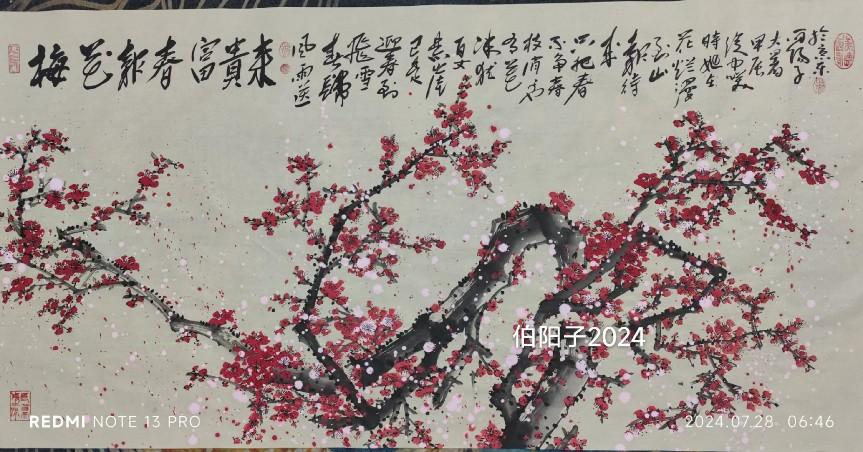 梅花報春富貴来
風雨送
春歸
飛雪
迎春到
已是
懸崖
百丈
冰猶
有花
枝俏
不爭春
只把春
来
報待
到山
花爛漫
時她在
叢中笑
甲辰
大暑
伯陽子
伯阳子2024
REDMI NOTE 13 PRO
2024.07.28 06:46